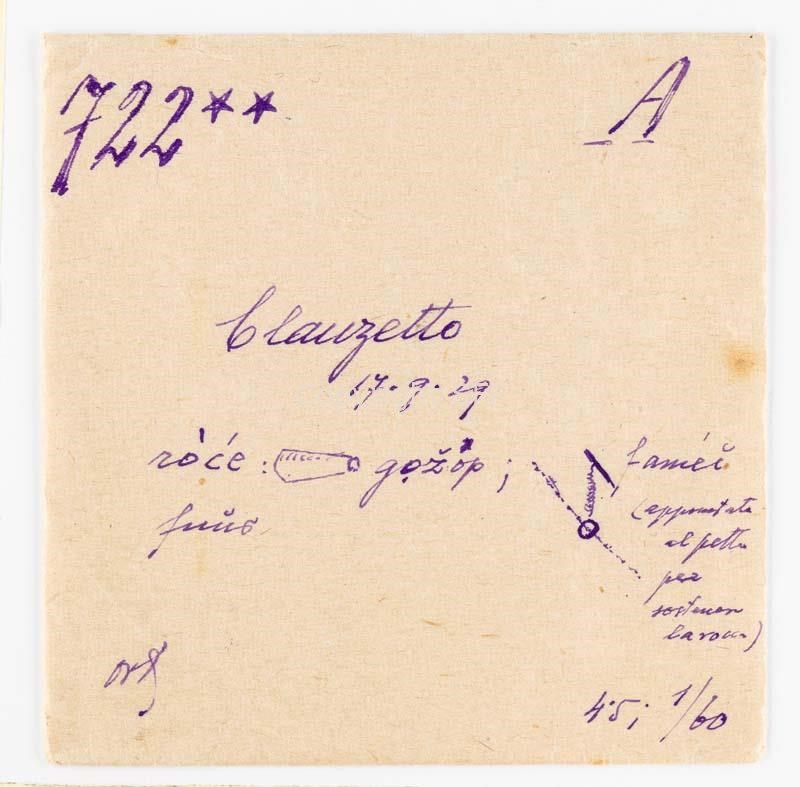 722** A
Clauzetto
17.9.29
ròće: gọžôp; faméč
fuŝs (appuntata
al petto
per
sostener
la rocca)
45; 1/60